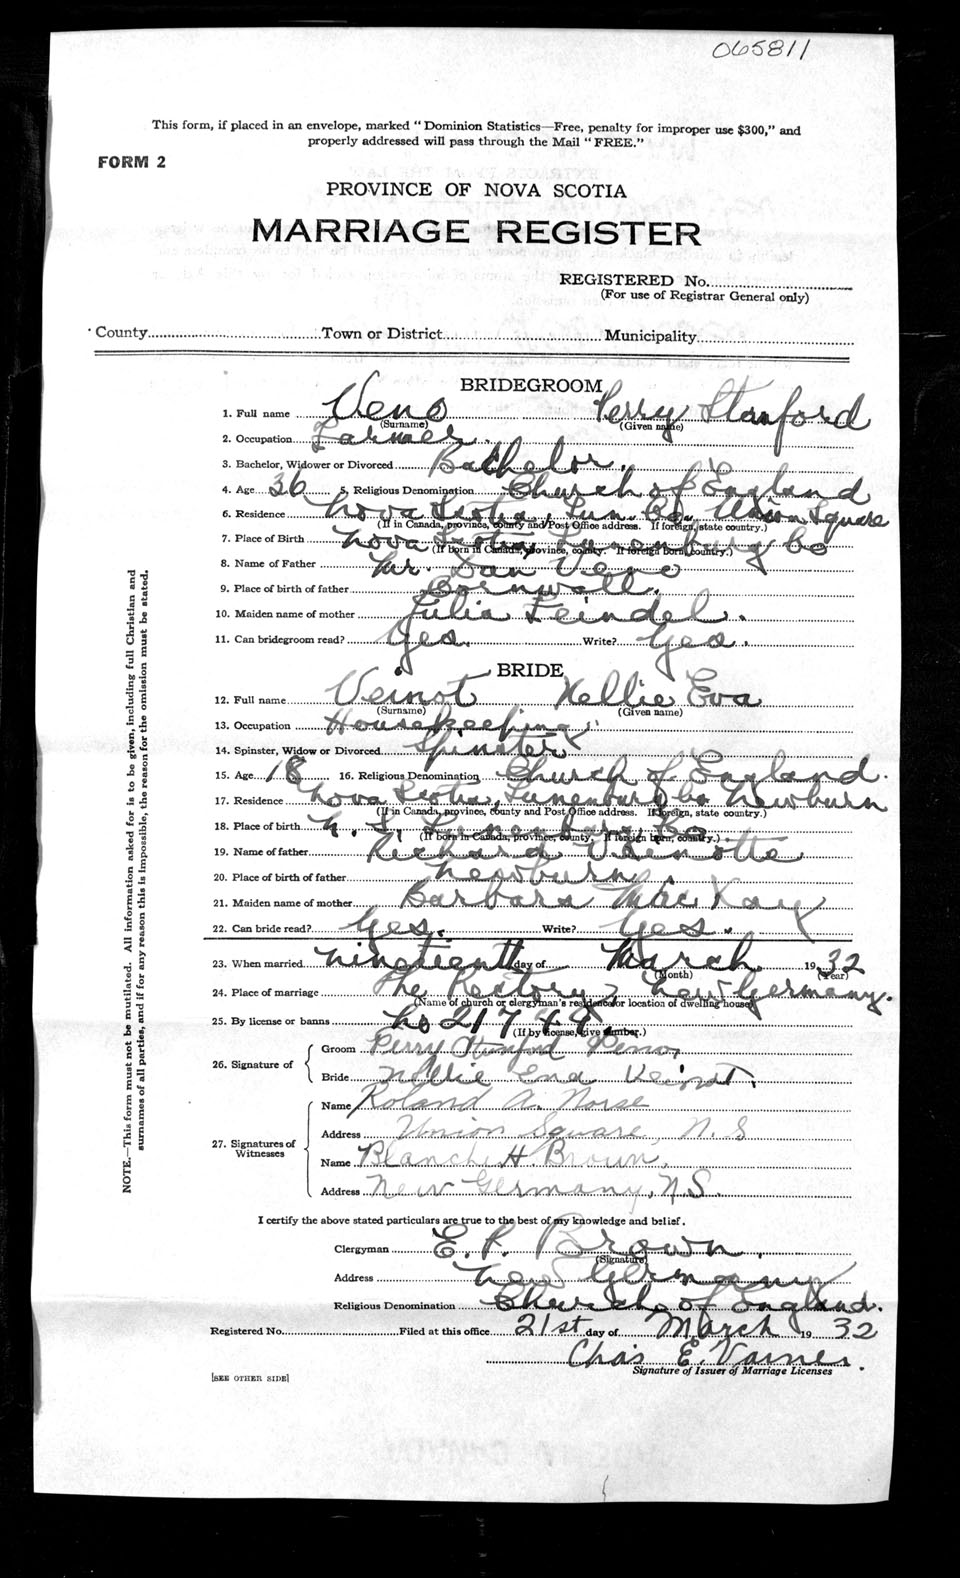 065811
This form, if placed in an envelope, marked "Dominion Statistics—Free, penalty for improper use $300," and
properly addressed will pass through the Mail "FREE."
FORM 2
PROVINCE OF NOVA SCOTIA
MARRIAGE REGISTER
REGISTERED No.
(For use of Registrar General only)
County Town or District Municipality
BRIDEGROOM
1. Full name Veno Perry Stanford
(Surname) (Given name)
2. Occupation Farmer.
3. Bachelor, Widower or Divorced Bachelor.
4. Age 36 5. Religious Denomination Church of England
6. Residence Nova Scotia, Lun. Co. Union Square
(If in Canada, province, county and Post Office address. If foreign, state country.)
7. Place of Birth Nova Scotia, Lunenburg Co
(If born in Canada, province, county. If foreign born, country.)
8. Name of Father Mr. Dan Veno
9. Place of birth of father Cornwall.
10. Maiden name of mother Julia Feindel.
11. Can bridegroom read? Yes. Write? Yes.
BRIDE
12. Full name Veinot Nellie Eva
(Surname) (Given name)
13. Occupation Housekeeping
14. Spinster, Widow or Divorced Spinster
15. Age 18 16. Religious Denomination Church of England.
17. Residence Nova Scotia, Lunenburg Co Newburn
(If in Canada, province, county and Post Office address. If foreign, state country.)
18. Place of birth N. S. Lunenburg Co.
(If born in Canada, province, county. If foreign born, country.)
19. Name of father Richard Veinotte
20. Place of birth of father Newburn.
21. Maiden name of mother Barbara MacKay
22. Can bride read? Yes. Write? Yes.
23. When married nineteenth day of March 1932
(Month) (Year)
24. Place of marriage The Rectory, New Germany.
(Name of church or clergyman's residence or location of dwelling house)
25. By license or banns No 21744
(If by license, give number.)
26. Signature of Groom Perry Stanford Veno,
Bride Nellie Eva Veinot.
27. Signatures of Witnesses
Name Roland A. Norse
Address Union Square, N.S
Name Blanch H Brown,
Address New Germany, N.S.
I certify the above stated particulars are true to the best of my knowledge and belief.
Clergyman E. P. Brown.
(Signature)
Address New Germany
Religious Denomination Church of England.
Registered No. Filed at this office 21st day of March 1932
Chas E. Varner.
Signature of Issuer of Marriage Licenses
[SEE OTHER SIDE]
NOTE.—This form must not be mutilated. All information asked for is to be given, including full Christian and
surnames of all parties, and if for any reason this is impossible, the reason for the omission must be stated.